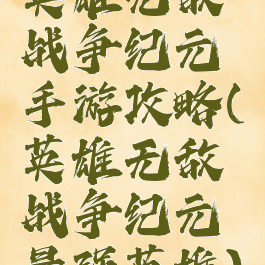 英雄无敌
战争纪元
手游攻略(
英雄无敌
战争纪元
最强英雄)